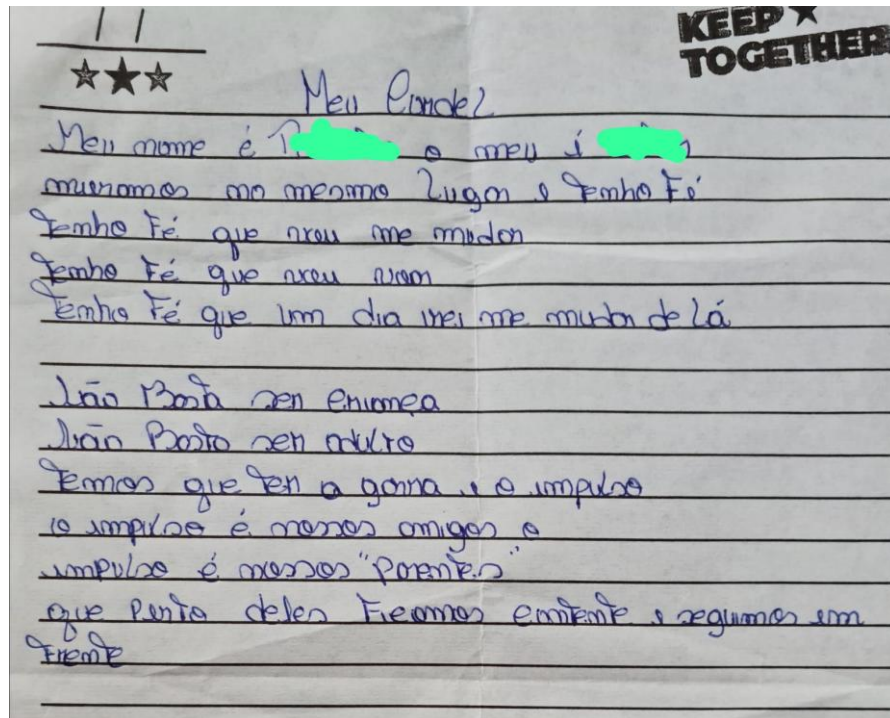 KEEP
TOGETHER
Meu Cordel
Meu nome é o meu é
moramos no mesmo lugar e tenho Fé
tenho Fé que vou me mudar
tenho Fé que vou
tenho Fé que um dia irei me mudar de lá
Não Basta ser criança
Não Basta ser adulto
temos que ter a garra e o impulso
o impulso é nossos amigos o
impulso é nossos "Parentes"
que Perto deles Ficamos e seguimos em
Frente